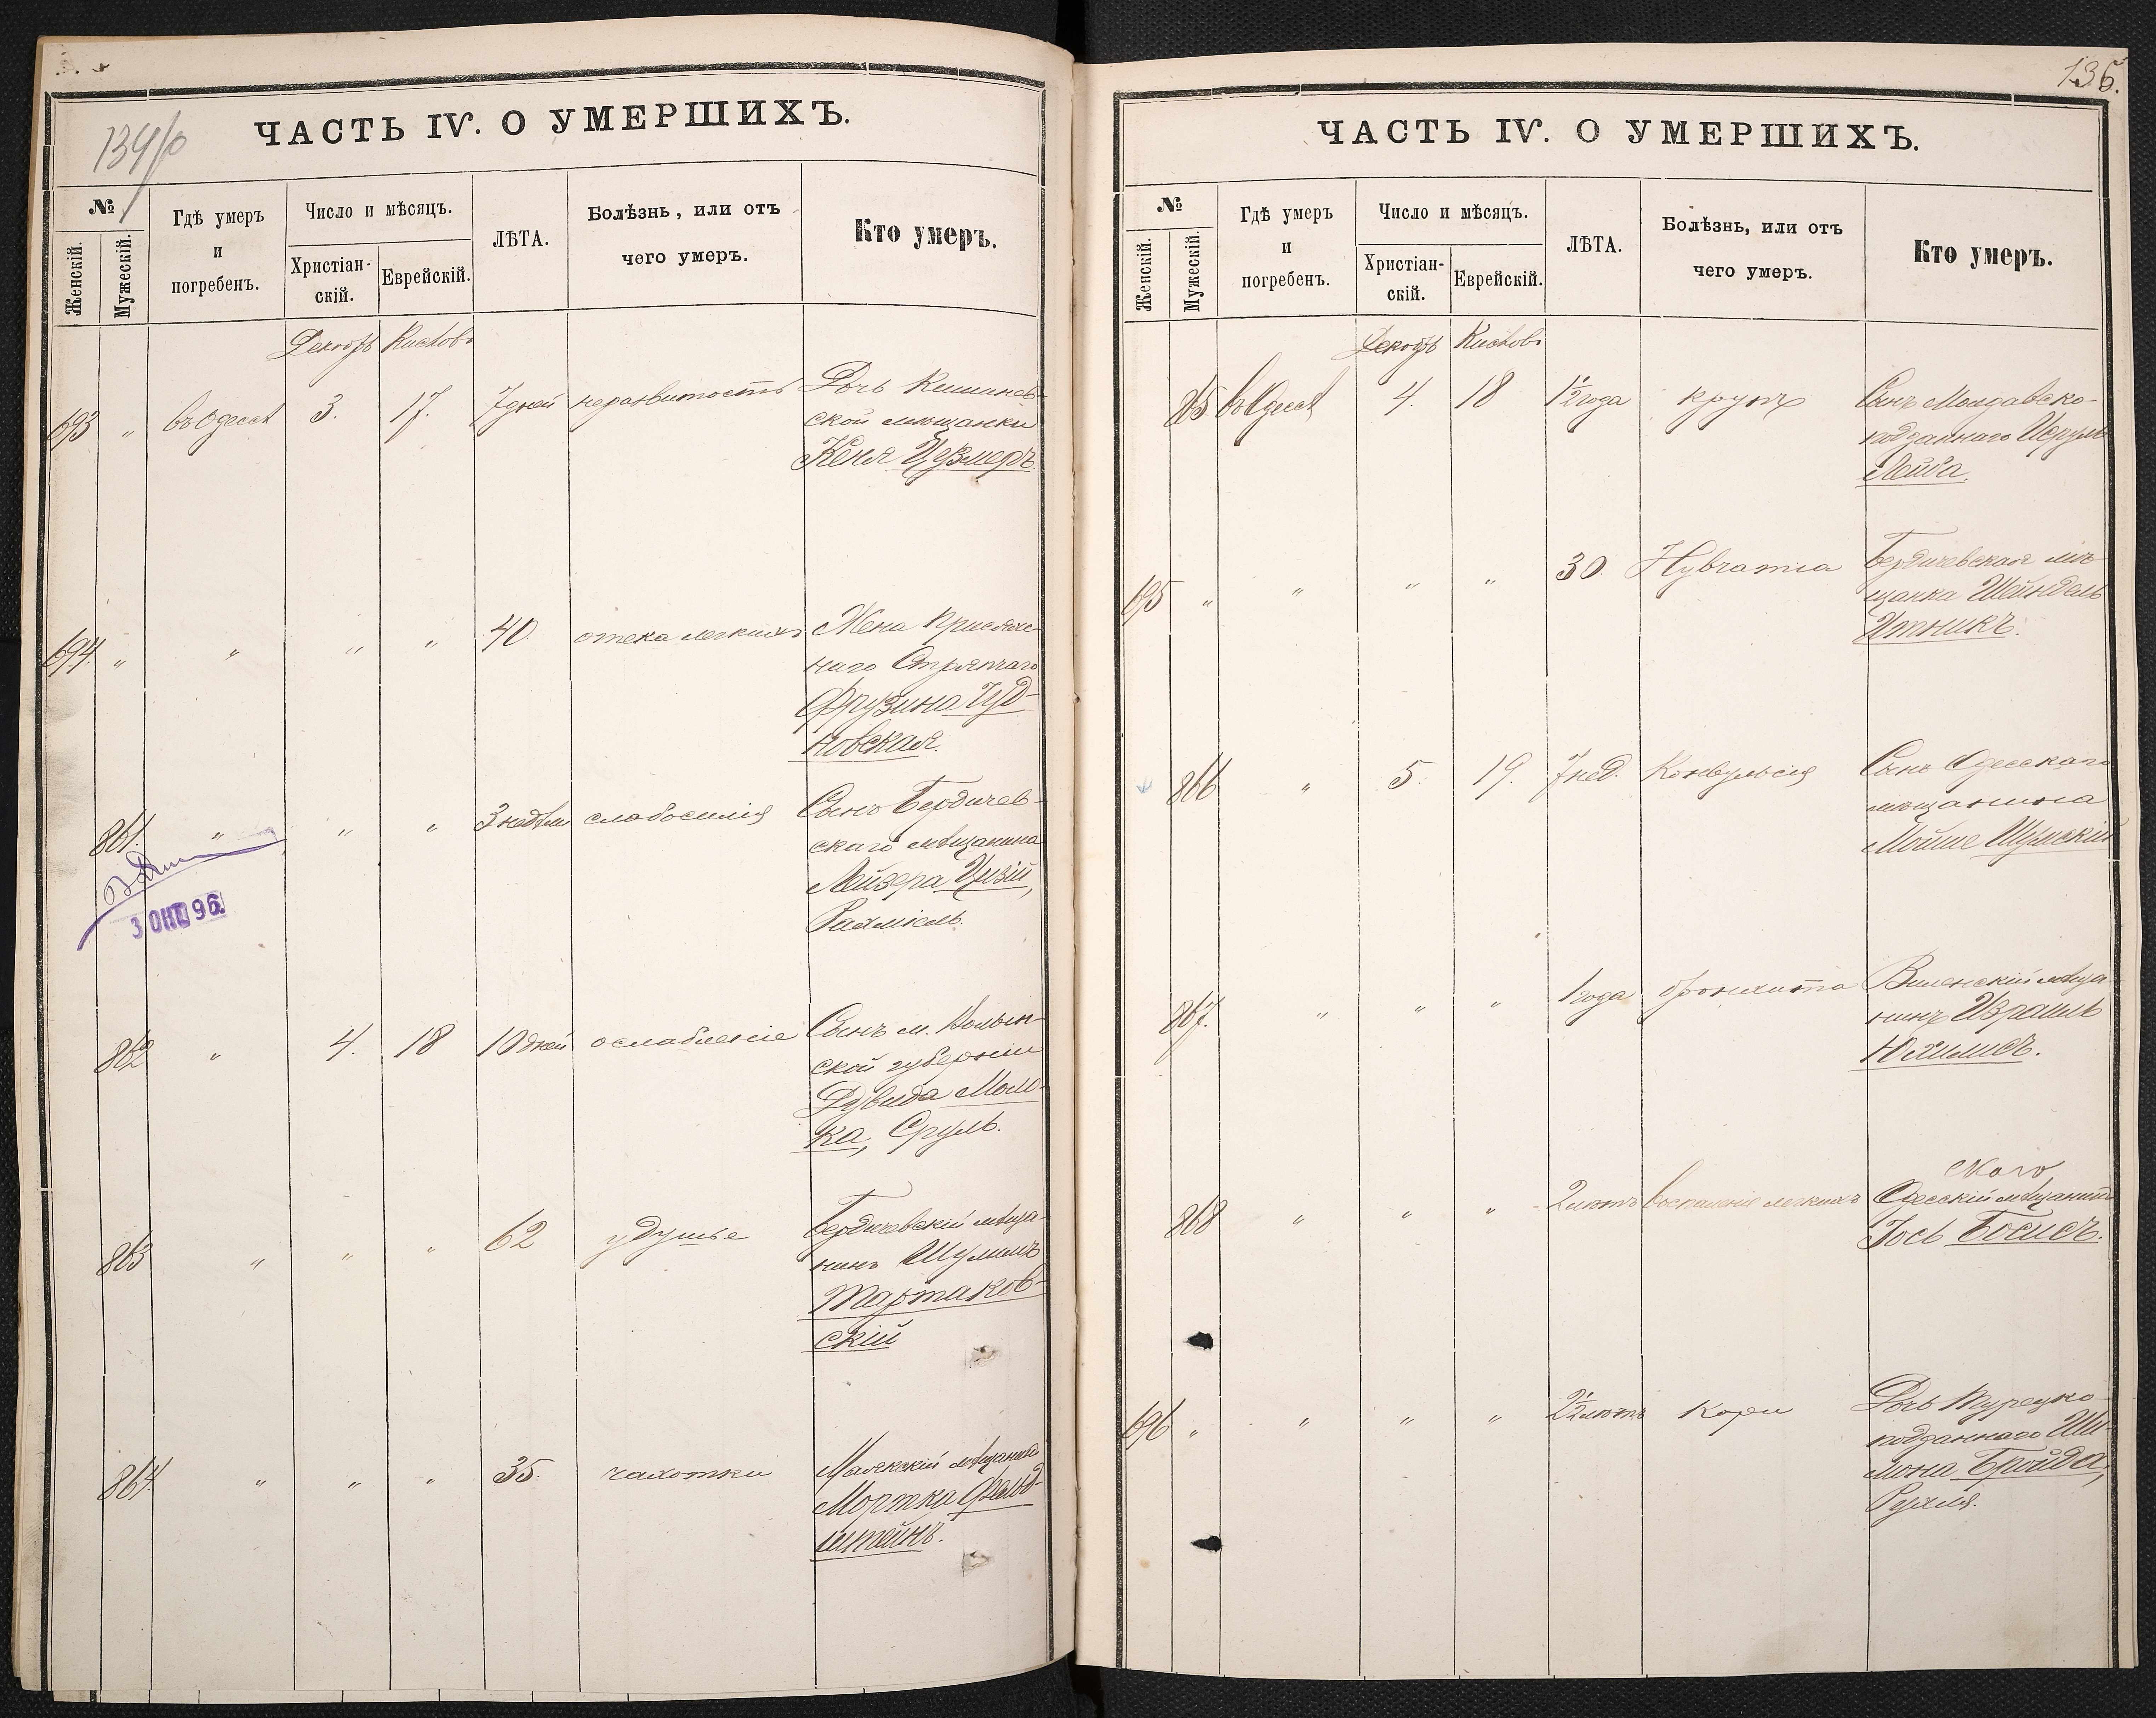 134/об
ЧАСТЬ IV. О УМЕРШИХЪ.
№
Женскій.
Мужескій.
Гдѣ умеръ
и
погребенъ.
Число и мѣсяцъ.
Христіан-
скій.
Еврейскій.
ЛѢТА.
Болѣзнь, или отъ
чего умеръ.
Кто умеръ.
Декабрь Кислевъ
693 " въ Одессѣ 3. 17. 7 дней неразвитость Дочь Кишинев-
ской мѣщанки
Кеня
694. " " " " 40 отека легкихъ Жена Присяж-
наго Стряпчаго
Фрузина Чуд-
новская.
861. " " " 3 недѣли слабосилія Сынъ Бердичев-
скаго мѣщанина
Лейзера Цизій,
Рахміель.
3 ОКТ 96.
862 " 4. 18 10 дней ослабленіе Сынъ м. Волын-
ской губерніи
Дувида Моло-
ка, Сруль.
863 " " " 62 удушье Бердичевскій мѣща-
нинъ Шулимъ
Тартаков-
скій
864. " " " 35. чахотки Маякскій мѣщанинъ
Мортка Фельд-
штейнъ.
135.
ЧАСТЬ IV. О УМЕРШИХЪ.
№
Женскій.
Мужескій.
Гдѣ умеръ
и
погребенъ.
Число и мѣсяцъ.
Христіан-
скій.
Еврейскій.
ЛѢТА.
Болѣзнь, или отъ
чего умеръ.
Кто умеръ.
Декабрь Кислевъ
865 въ Одессѣ 4. 18 1½ года крупъ Сынъ Молдавско-
подданнаго
Лейба.
695 " " " " 30. Бердичевская мѣ-
щанка Шейндель
Итникъ.
866 " 5. 19. 7 нед. Конвульсія Сынъ Одесскаго
мѣщанина
Мойше Шумскій
867. " " " 1 года бронхита Виленскій мѣща-
нинъ Израиль
Юхилисъ.
868 " " " 2 лѣтъ воспаленіе легкихъ
скаго
Одесскій мѣщанинъ
Іось Босисъ.
696 " " " " 2½ лѣтъ Кори Дочь Турецко-
подданнаго Ши-
мона Бройда,
Рухля.